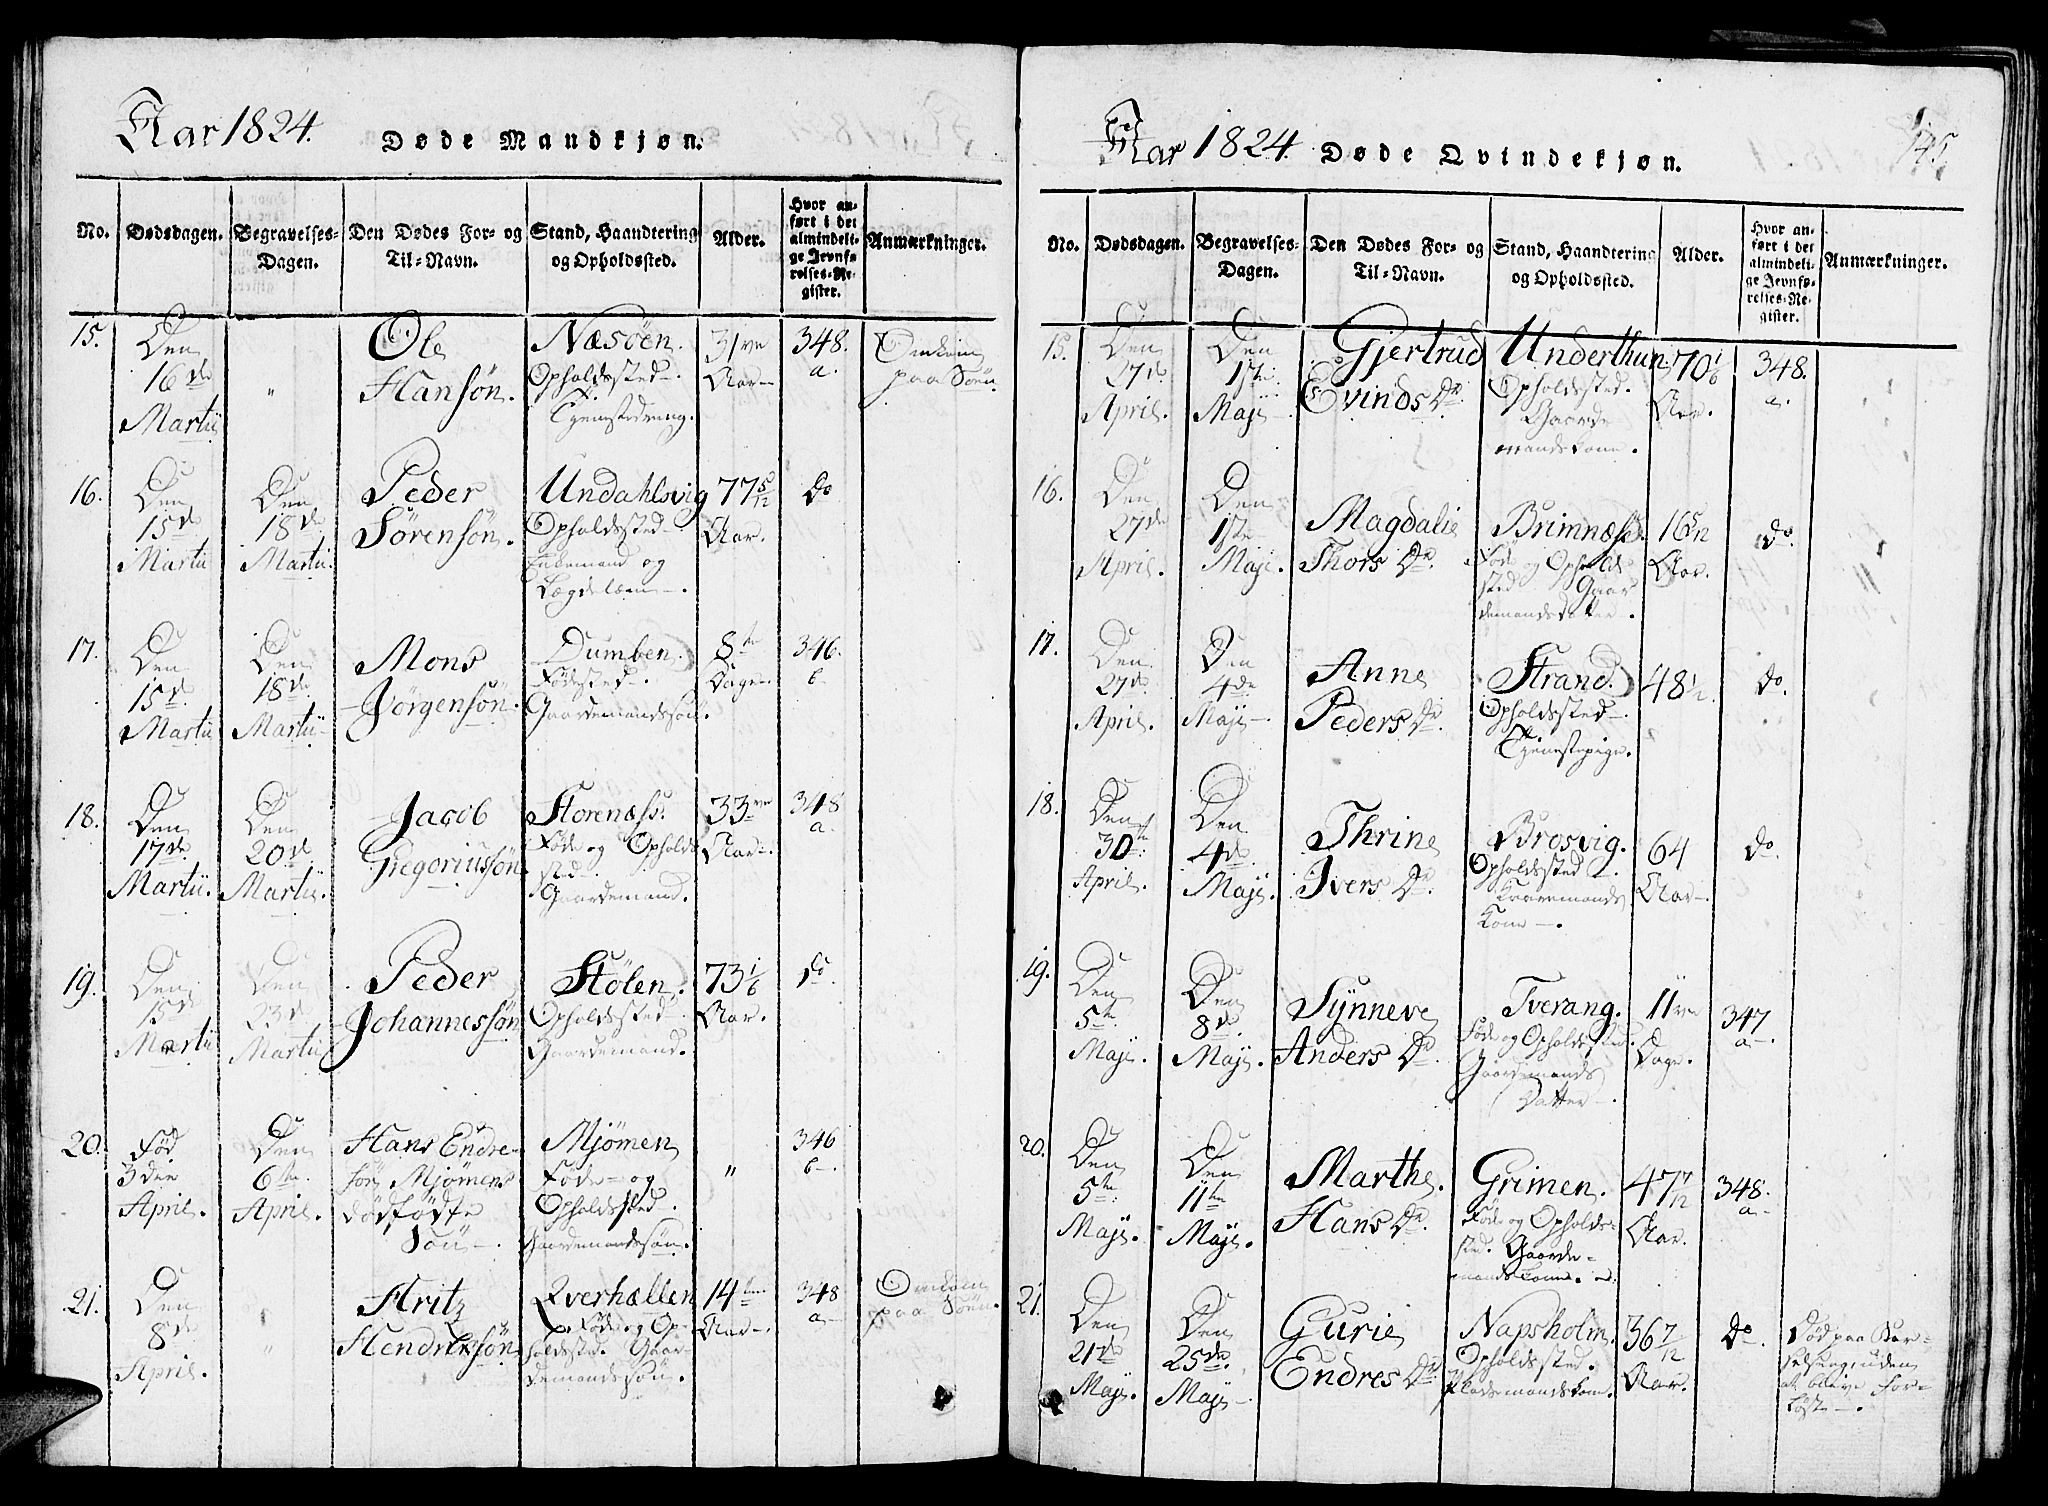 Aar 1824. Døde Mandkjøn.
No. Dødsdagen. Begravelses-Dagen. Den Dødes For- og Til-Navn. Stand, Haandtering og Opholdssted. Alder. Hvor anført i det almindelige Jevnførelses-Register. Anmærkninger.
15. Den 16de Martii " Ole Hansøn. Næsøen. Opholdssted Tjenestedreng. 31ve Aar 348. a. Omkom paa Søen.
16. Den 15de Martii Den 18de Martii. Peder Sørensøn. Undahlsvig Opholdssted Enkemand og Lægdslem. 77 5/12 Aar. do
17. Den 15de Martii Den 18de Martii Mons Jörgensøn. Dumben. Fødested. Gaardemandssøn. 8te Dage 346. b.
18. Den 17de Martii. Den 20de Martii. Jacob Gregoriussøn Storenæss. Føde og Opholdssted. Gaardemand. 33ve Aar 348 a.
19. Den 15de Martii Den 23de Martii Peder Johannessøn Stölen. Opholdssted Gaardemand. 73 1/6 Aar. do
20. Fød 3die April. Den 6te April. Hans Endresøn Mjømens dödfödte Søn. Mjömen Føde- og Opholdssted. Gaardemandssøn. " 346 b.
21. Den 8de April. " Fritz Hendrichsøn Qverhællen Føde og Opholdssted. Gaardemandssøn. 14ten Aar 348 a Omkom paa Søen.
Aar 1824. Døde Qvindekjøn.
145.
No. Dødsdagen. Begravelses-Dagen. Den Dødes For- og Til-Navn. Stand, Haandtering og Opholdssted. Alder. Hvor anført i det almindelige Jevnførelses-Register. Anmærkninger.
15. Den 27de April. Den 1ste Maji Gjertrud Evinds Dr. Underthun Opholdssted. Gaardemandskone. 70 1/6 Aar. 348. a.
16. Den 27de April. Den 1ste Maji. Magdalie Thors Dr. Brimnæss. Føde og Opholdssted Gaardemandsdatter. 16 5/12 Aar. do.
17. Den 27de April. Den 4de Maji Anne Peders Dr. Strand. Opholdssted. Tjenestepige. 48 1/2 do.
18. Den 30te April. Den 4de Maji. Thrine Ivers Dr. Brosvig. Opholdssted Kaaremands Kone. 64 Aar do.
19. Den 5te Maji. Den 8de Maji. Synneve Anders Dr. Tverang. Føde og Opholdssted. Gaardemands Datter. 11ve Dage. 347 a
20. Den 5te Maji. Den 11te Maji. Marthe Hans Dr. Grimen. Føde og Opholdssted. Gaardemandskone. 47 7/12 Aar. 348. a
21. Den 21de Maji. Den 25de Maji Gurie Endres Dr. Napsholm. Opholdssted. Pladsmandskone. 36 7/12 Aar. do. Død paa Barselseng, uden at blive forløst.